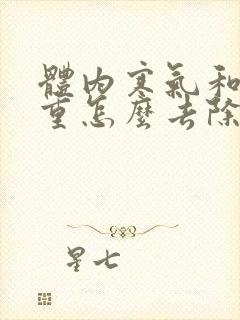 體內寒氣和
重怎麼去除
星七